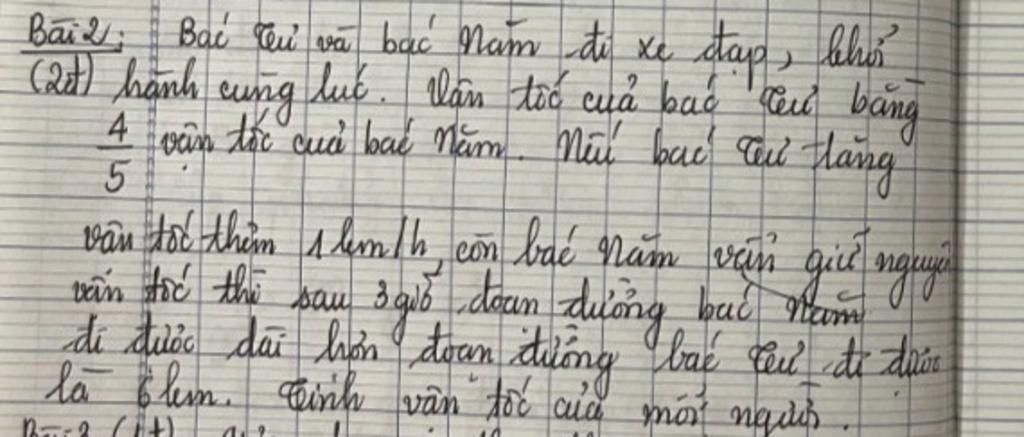 Bài 2: Bác Tư và bác Năm đi xe đạp, khởi
(2đ) hành cùng lúc. Vận tốc của bác Tư bằng
4/5 vận tốc của bác Năm. Nếu bác Tư tăng
vận tốc thêm 1 km/h, còn bác Năm vẫn giữ nguyên
vận tốc thì sau 3 giờ, đoạn đường bác Năm
đi được dài hơn đoạn đường bác Tư đi được
là 6 km. Tính vận tốc của mỗi người.